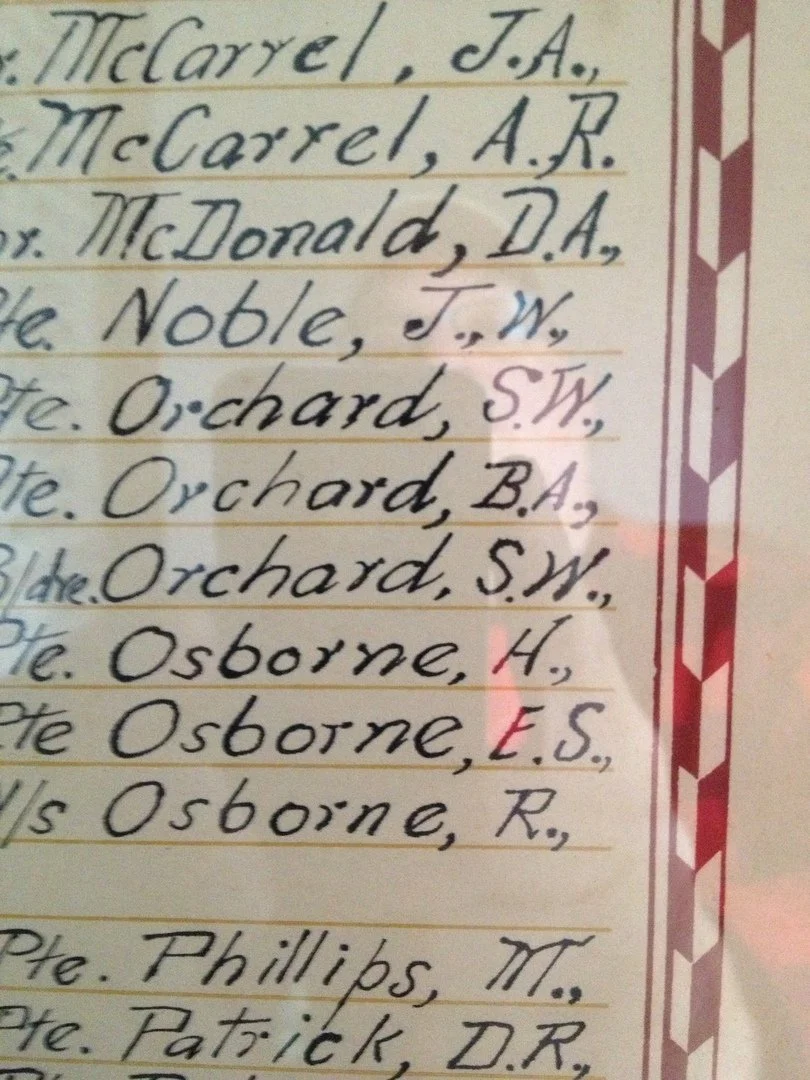 McCarrel, J.A.,
McCarrel, A.R.
McDonald, D.A.,
Pte. Noble, J., W.,
Pte. Orchard, S.W.,
Pte. Orchard, B.A.,
Orchard, S.W.,
Pte. Osborne, H.,
Pte Osborne, E.S.,
Osborne, R.,
Pte. Phillips, M.,
Pte. Patrick, D.R.,